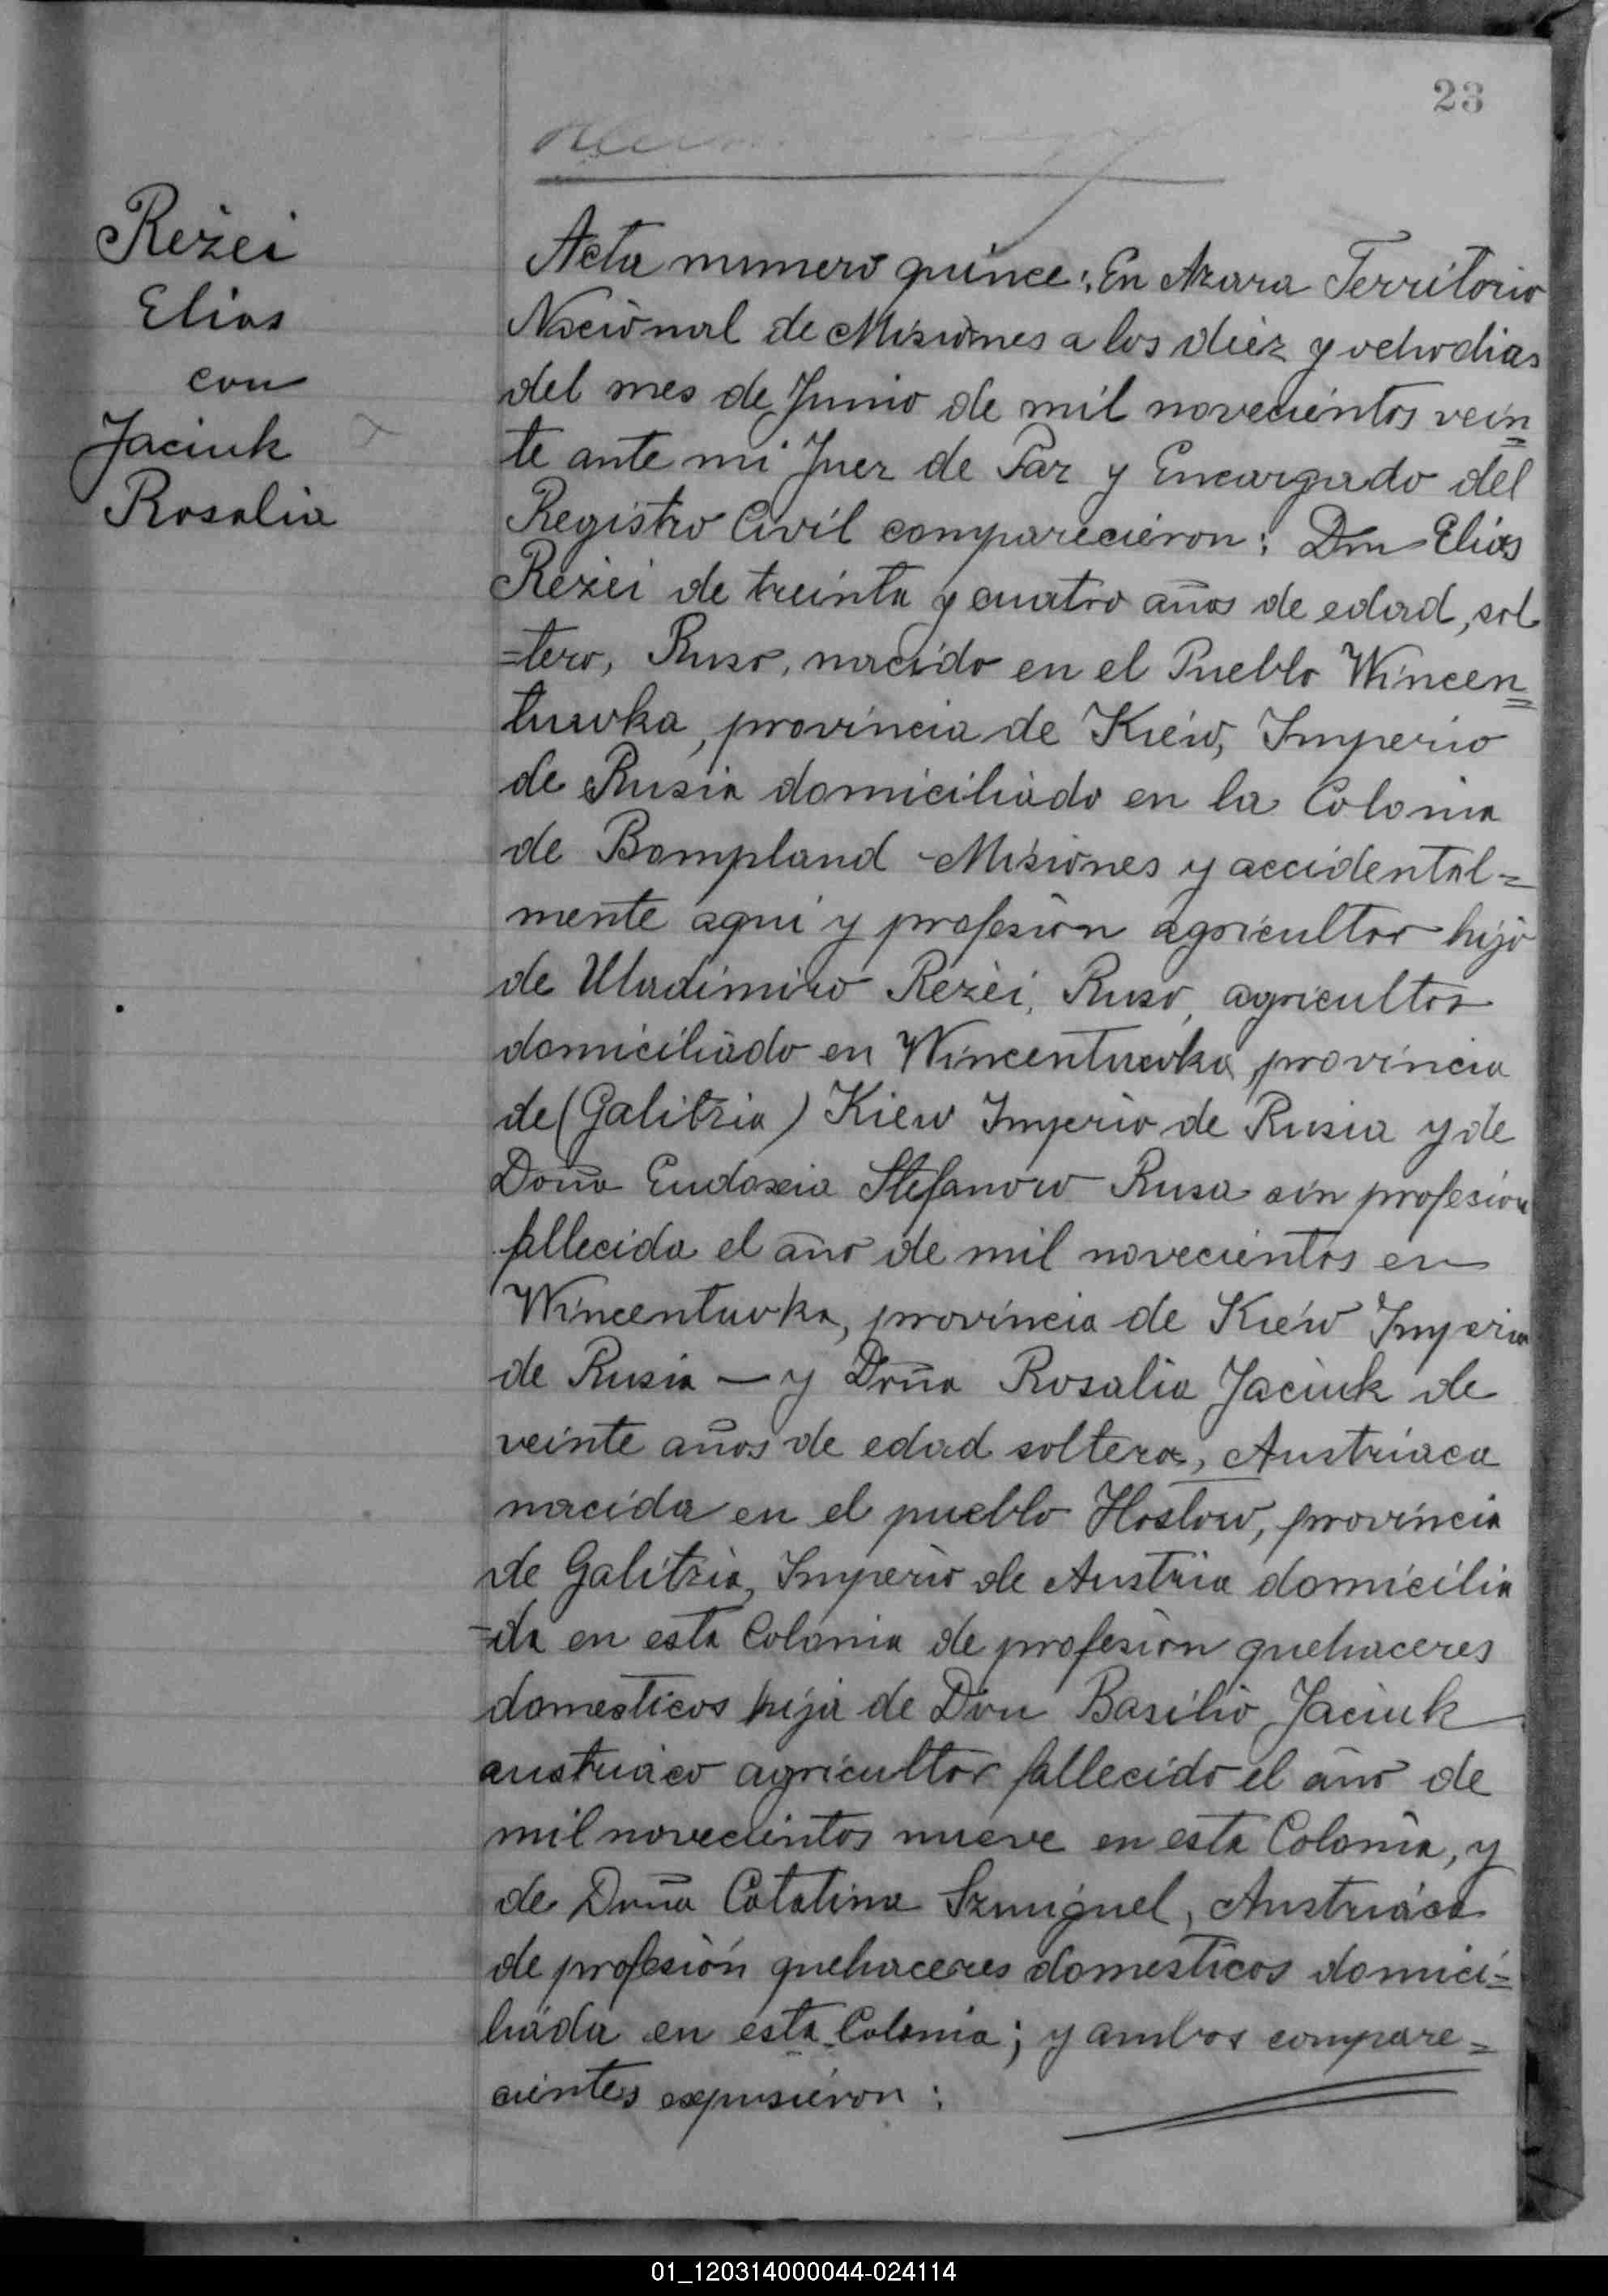 23
Reżei
Elias
con
Jaciuk
Rosalia
Acta numero quince: En Azara Territorio
Nacional de Misiones a los diez y ocho dias
del mes de Junio de mil novecientos vein
te ante mi Juez de Paz y Encargado del
Registro Civil comparecieron: Don Elias
Reżei de treinta y cuatro años de edad, sol
=tero, Ruso, nacido en el Pueblo Wincen=
tuwka, provincia de Kiew, Imperio
de Rusia domiciliado en la Colonia
de Bompland Misiones y accidental=
mente aqui y profesion agricultor hijo
de Uladimiro Reżei, Ruso, agricultor
domiciliado en Wincentuwka, provincia
de (Galitzia) Kiew Imperio de Rusia y de
Doña Eudoxia Stefanow Rusa sin profesion
fallecida el año de mil novecientos en
Wincentuvka, provincia de Kiew Imperio
de Rusia — y Doña Rosalia Jaciuk de
veinte años de edad soltera, Austriaca
nacida en el pueblo Hostow, provincia
de Galitzia, Imperio de Austria domicilia
=da en esta Colonia de profesion quehaceres
domesticos hija de Don Basilio Jaciuk
austriaco agricultor fallecido el año de
mil novecientos nueve en esta Colonia, y
de Doña Catalina Szmiguel, Austriaca
de profesion quehaceres domesticos domici=
liada en esta Colonia; y ambos compare=
cientes expusieron:
01_120314000044-024114